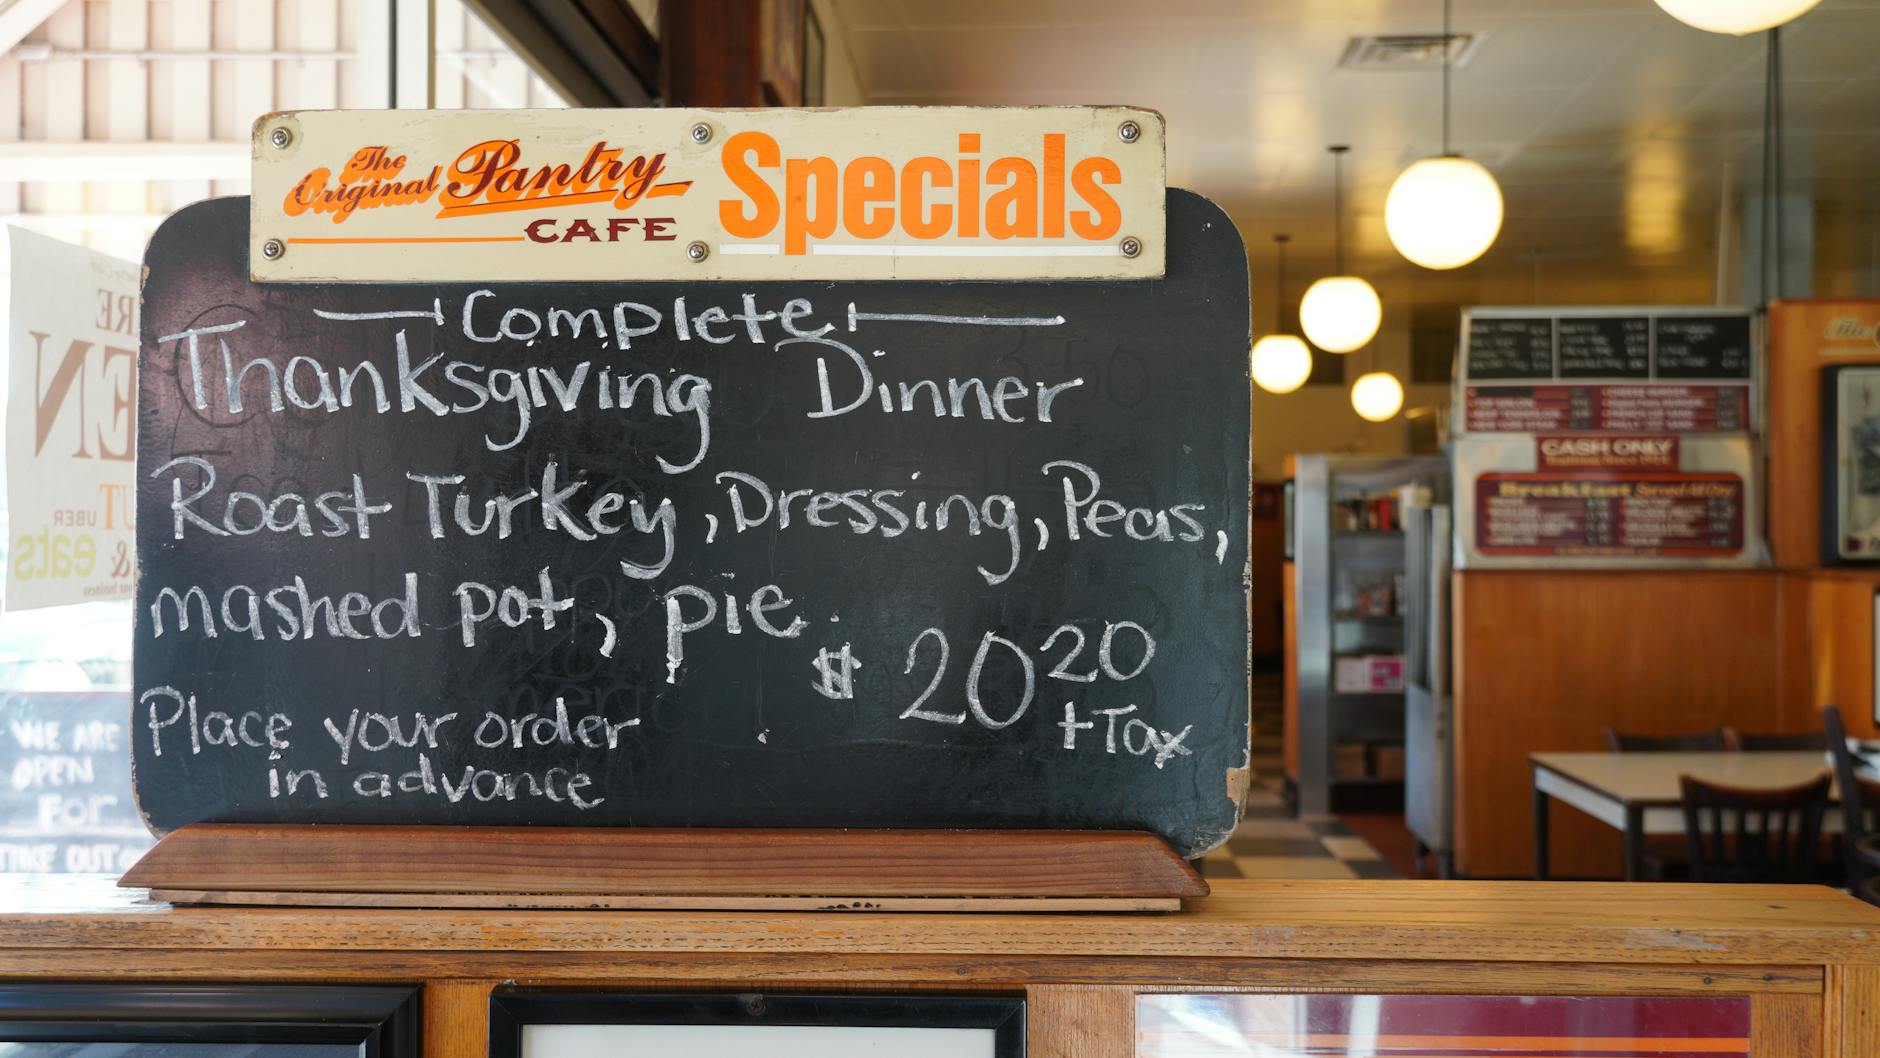 The
Original Pantry
CAFE
Specials
Complete
Thanksgiving Dinner
Roast Turkey, Dressing, Peas,
mashed pot, pie
$ 20 20
+Tax
Place your order
in advance
EN
UBER
eats
&
WE ARE
OPEN
FOR
TAKE OUT
CASH ONLY
Breakfast Served All Day
The